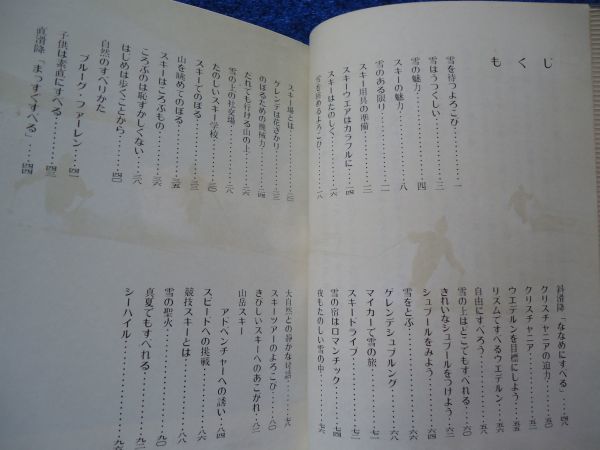 もくじ
雪を待つよろこび…………一
雪はうつくしい…………三
雪の魅力…………四
スキーの魅力…………八
雪のある限り…………一一
スキー用具の準備…………一二
スキーウエアはカラフルに…………一四
スキーはたのしく…………一六
雪を眺めるよろこび…………一八
スキー場とは…………二〇
ゲレンデは花ざかり…………二三
のぼるための機械力…………二四
だれでも行ける山の上…………二六
雪の上の社交場…………二八
たのしいスキー学校…………三〇
スキーでのぼる…………三二
山を眺めてのぼる…………三五
スキーはころぶもの…………
ころぶのは恥ずかしくない…………三八
はじめは歩くことから…………四〇
自然のすべりかた
プルーク・ファーレン…………四二
子供は素直にすべる…………四三
直滑降「まっすぐすべる」…………四四
斜滑降「ななめにすべる」…………四六
クリスチャニアの迫力…………五〇
クリスチャニア…………五二
ウエデルンを目標にしよう…………五五
リズムですべるウエデルン…………五六
自由にすべろう…………五八
雪の上はどこでもすべれる…………六〇
きれいなシュプールをつけよう…………六二
シュプールをみよう…………六四
雪をとぶ…………六六
ゲレンデシュプルング…………六八
マイカーで雪の旅…………七〇
スキードライブ…………七二
雪の宿はロマンチック…………七四
夜もたのしい雪の中…………七六
大自然との静かな対話…………七八
スキーツアーのよろこび…………八〇
きびしいスキーへのあこがれ…………八二
山岳スキー
アドベンチャーへの誘い…………八四
スピードへの挑戦…………八六
競技スキーとは…………八八
雪の聖火…………九〇
真夏でもすべれる…………九二
シーハイル…………九六